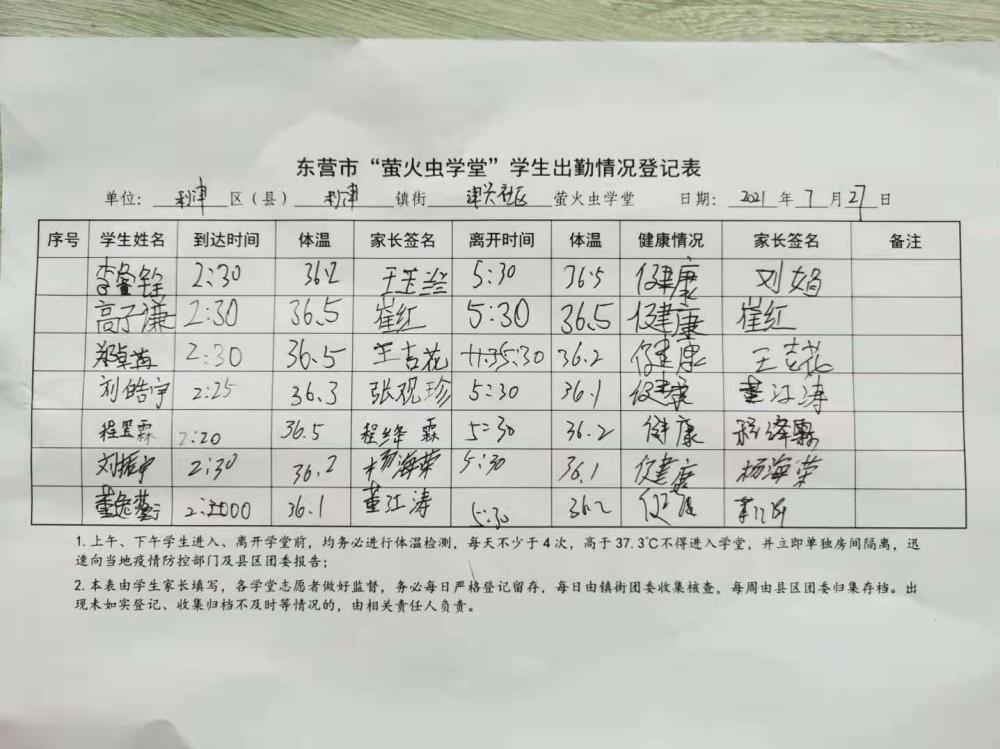 东营市“萤火虫学堂”学生出勤情况登记表
单位： 利津 区（县） 利津 镇街 津兴社区 萤火虫学堂 日期： 2021 年 7 月 27 日
序号 学生姓名 到达时间 体温 家长签名 离开时间 体温 健康情况 家长签名 备注
2:30 36.2 王玉兰 5:30 36.5 健康 刘娟
高子谦 2:30 36.5 崔红 5:30 36.5 健康 崔红
2:30 36.5 王吉花 5:30 36.2 健康 王吉花
刘皓宇 2:25 36.3 张观珍 5:30 36.1 健康 董江涛
程昱霖 2:20 36.5 程绛霖 5:30 36.2 健康 程绛霖
刘振宇 2:30 36.2 杨海荣 5:30 36.1 健康 杨海荣
36.1 董江涛 5:30 36.2 健康
1.上午、下午学生进入、离开学堂前，均务必进行体温检测，每天不少于4次，高于37.3℃不得进入学堂，并立即单独房间隔离，迅
速向当地疫情防控部门及县区团委报告；
2.本表由学生家长填写，各学堂志愿者做好监督，务必每日严格登记留存，每日由镇街团委收集核查，每周由县区团委归集存档。出
现未如实登记、收集归档不及时等情况的，由相关责任人负责。